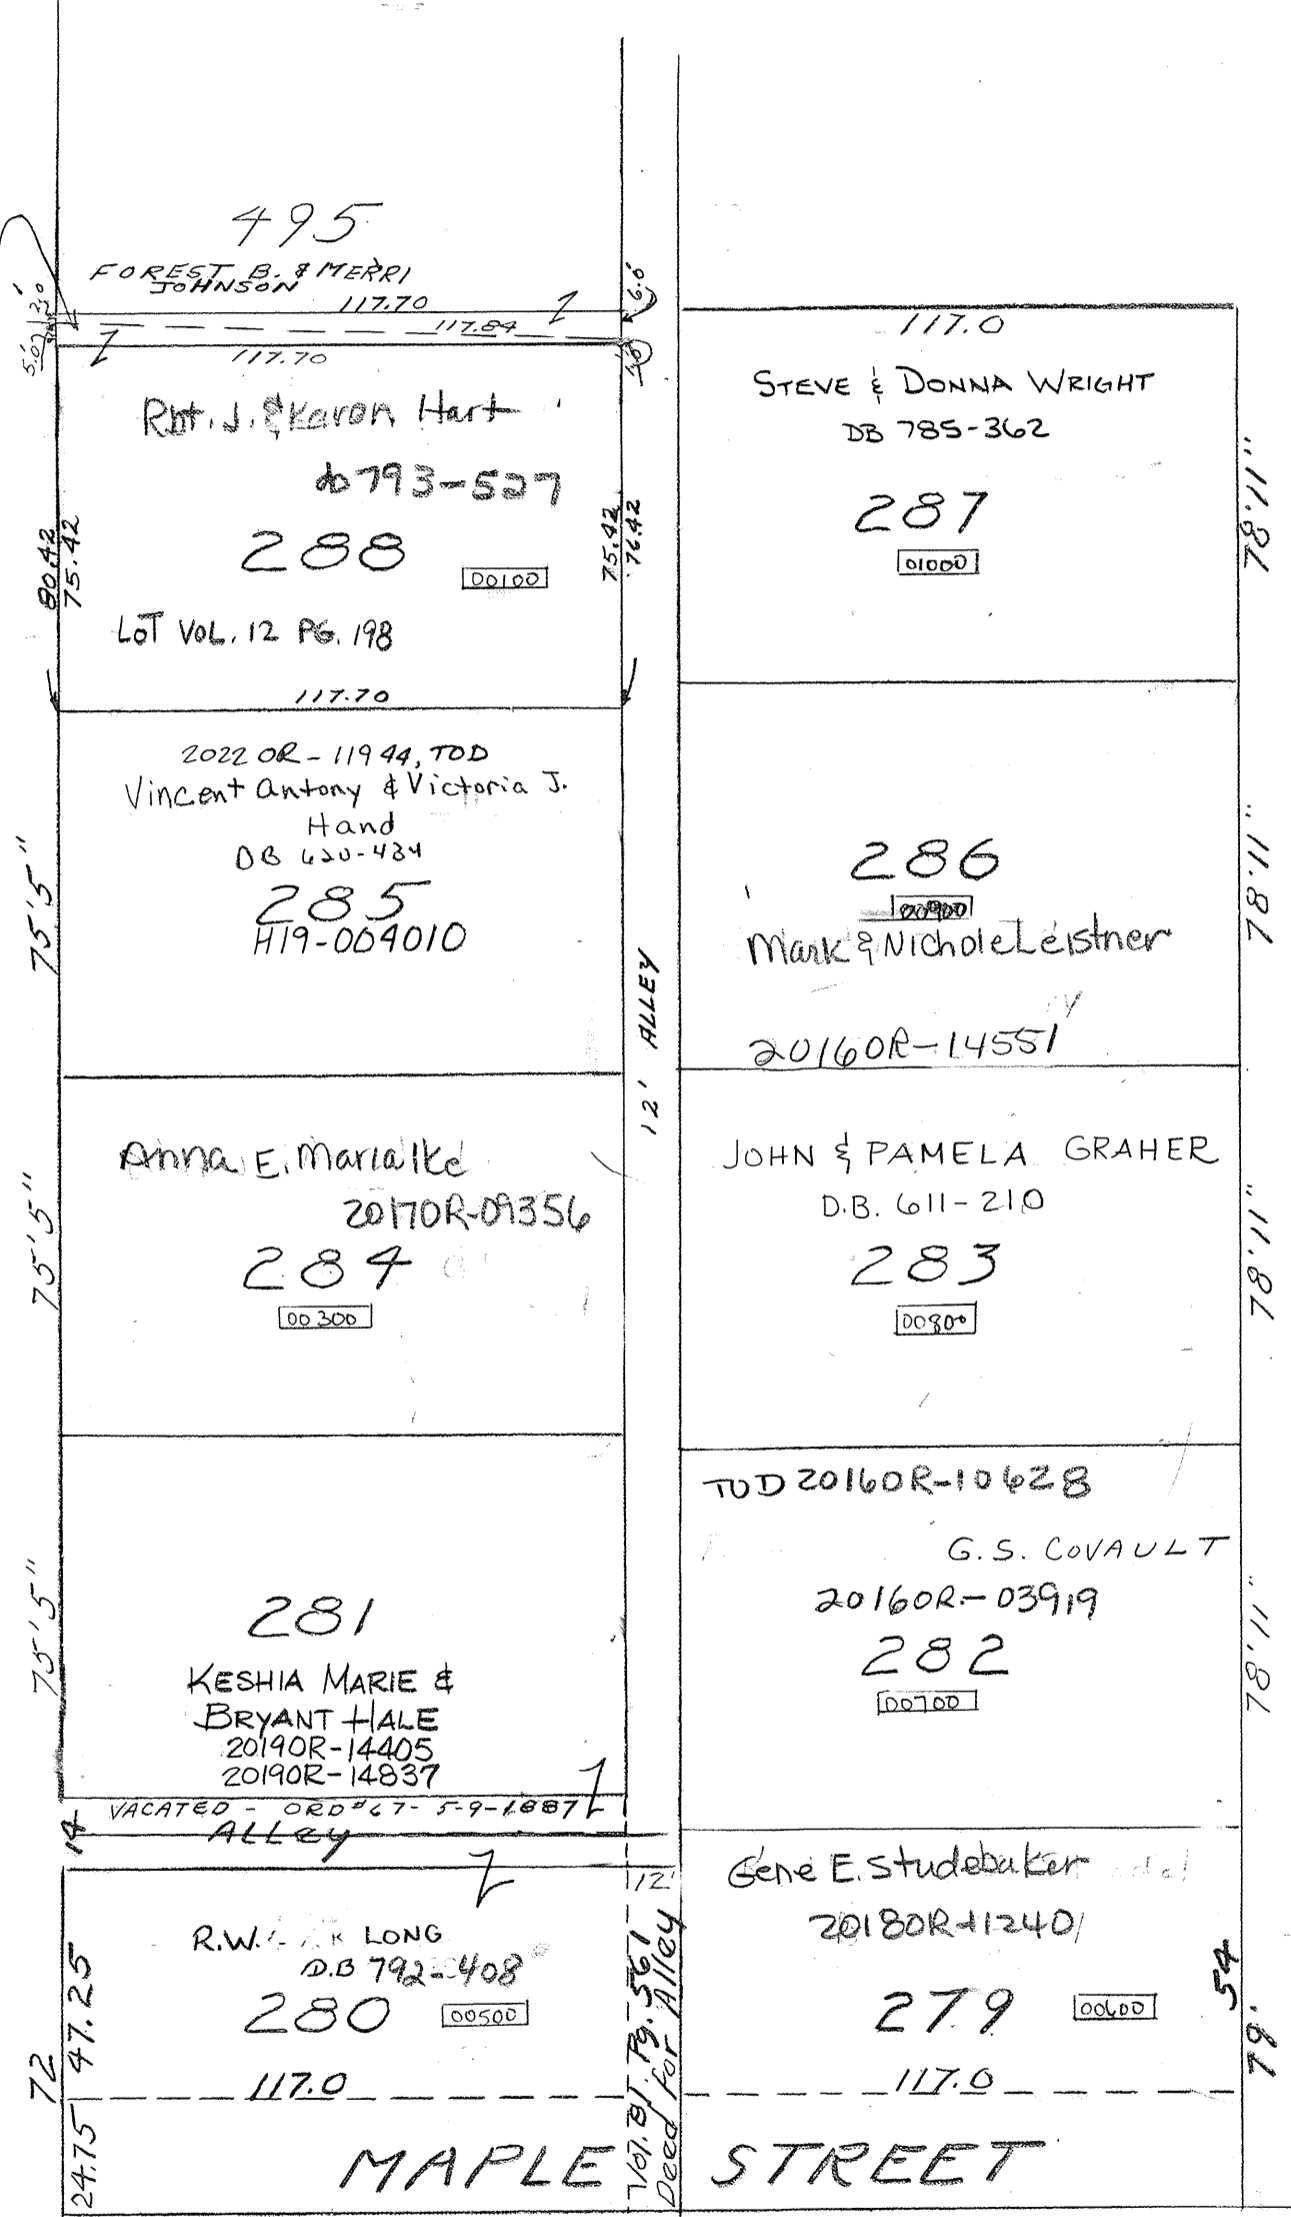 495
FOREST B. & MERRI
JOHNSON
117.70
6.0'
2.0'
117.84
5.0'
117.70
Rbt. J. & Karon Hart
db 793-527
288
00100
80.42
75.42
75.42
76.42
LOT VOL. 12 PG. 198
117.70
2022 OR - 11944, TOD
Vincent Antony & Victoria J.
Hand
DB 620-434
285
H19-004010
75'5"
Anna E. Marialke
2017OR-09356
284
00300
75'5"
281
KESHIA MARIE &
BRYANT HALE
2019OR-14405
2019OR-14837
75'5"
VACATED - ORD#67- 5-9-1887
ALLEY
14
R.W. LONG
D.B 792-408
280
00500
47.25
72
117.0
24.75
12' ALLEY
12'
Vol. 81 Pg. 561
Deed for Alley
117.0
STEVE & DONNA WRIGHT
DB 785-362
287
01000
78'.11"
286
00900
Mark & Nichole Leistner
2016OR-14551
78'.11"
JOHN & PAMELA GRAHER
D.B. 611-210
283
00800
78'.11"
TOD 2016OR-10628
G.S. COVAULT
2016OR-03919
282
00700
78'.11"
Gene E. Studebaker
2018OR-11240
279
00600
79.54
117.0
MAPLE STREET